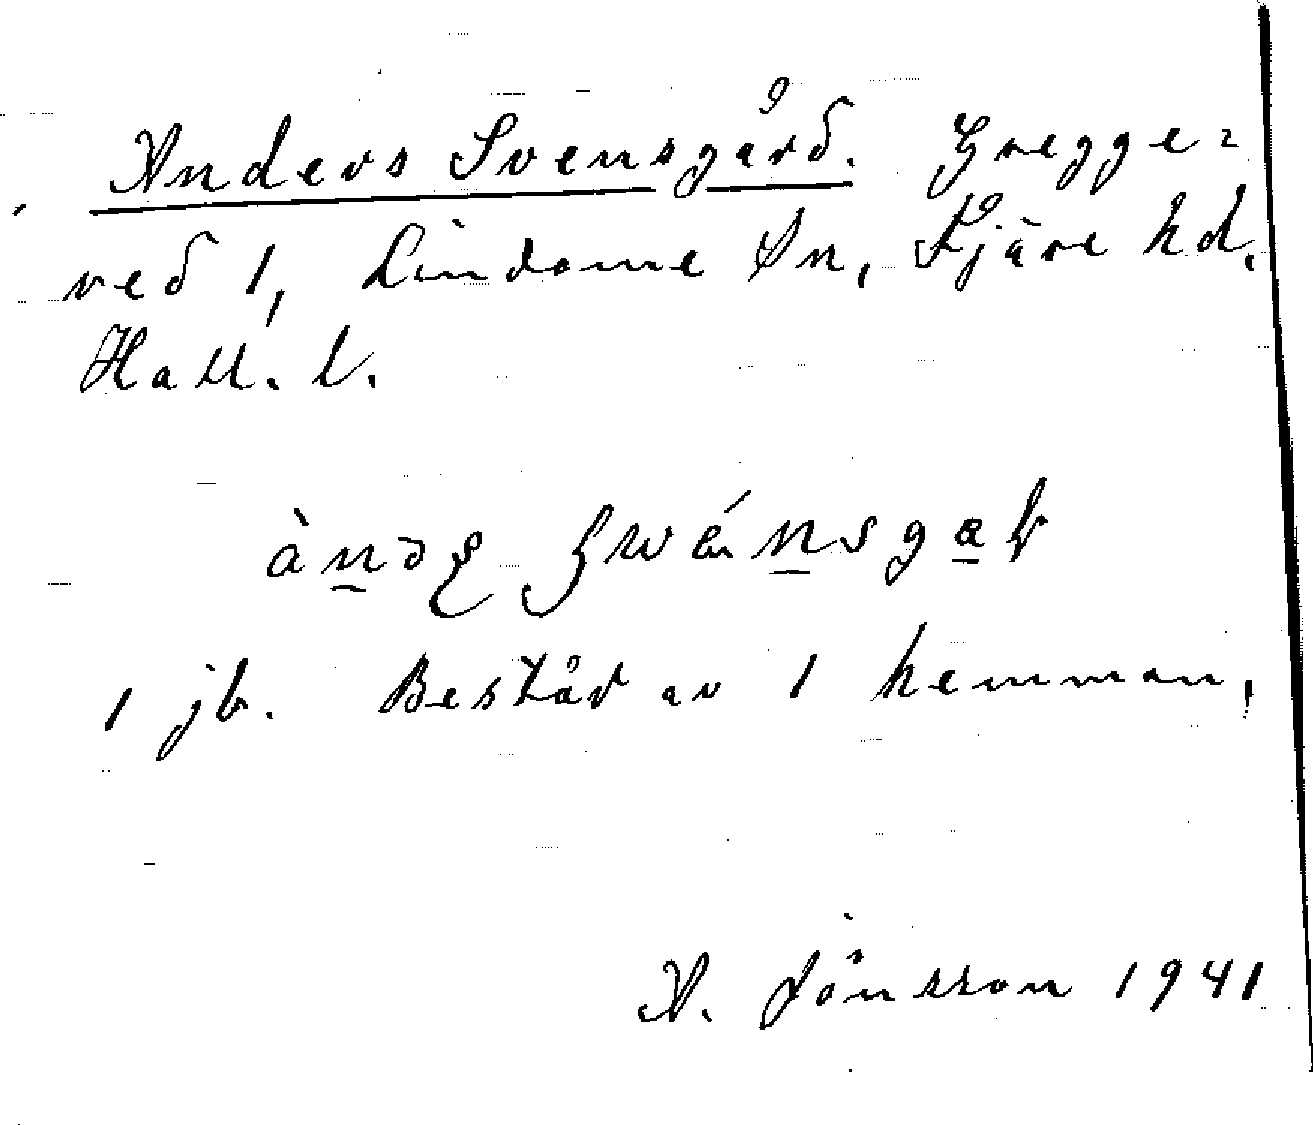 Anders Svensgård. Gregge-
red 1, Lindome Sn, Fjäre hd.
Hall. l.
1 jb. Består av 1 hemman,
A. Jönsson 1941